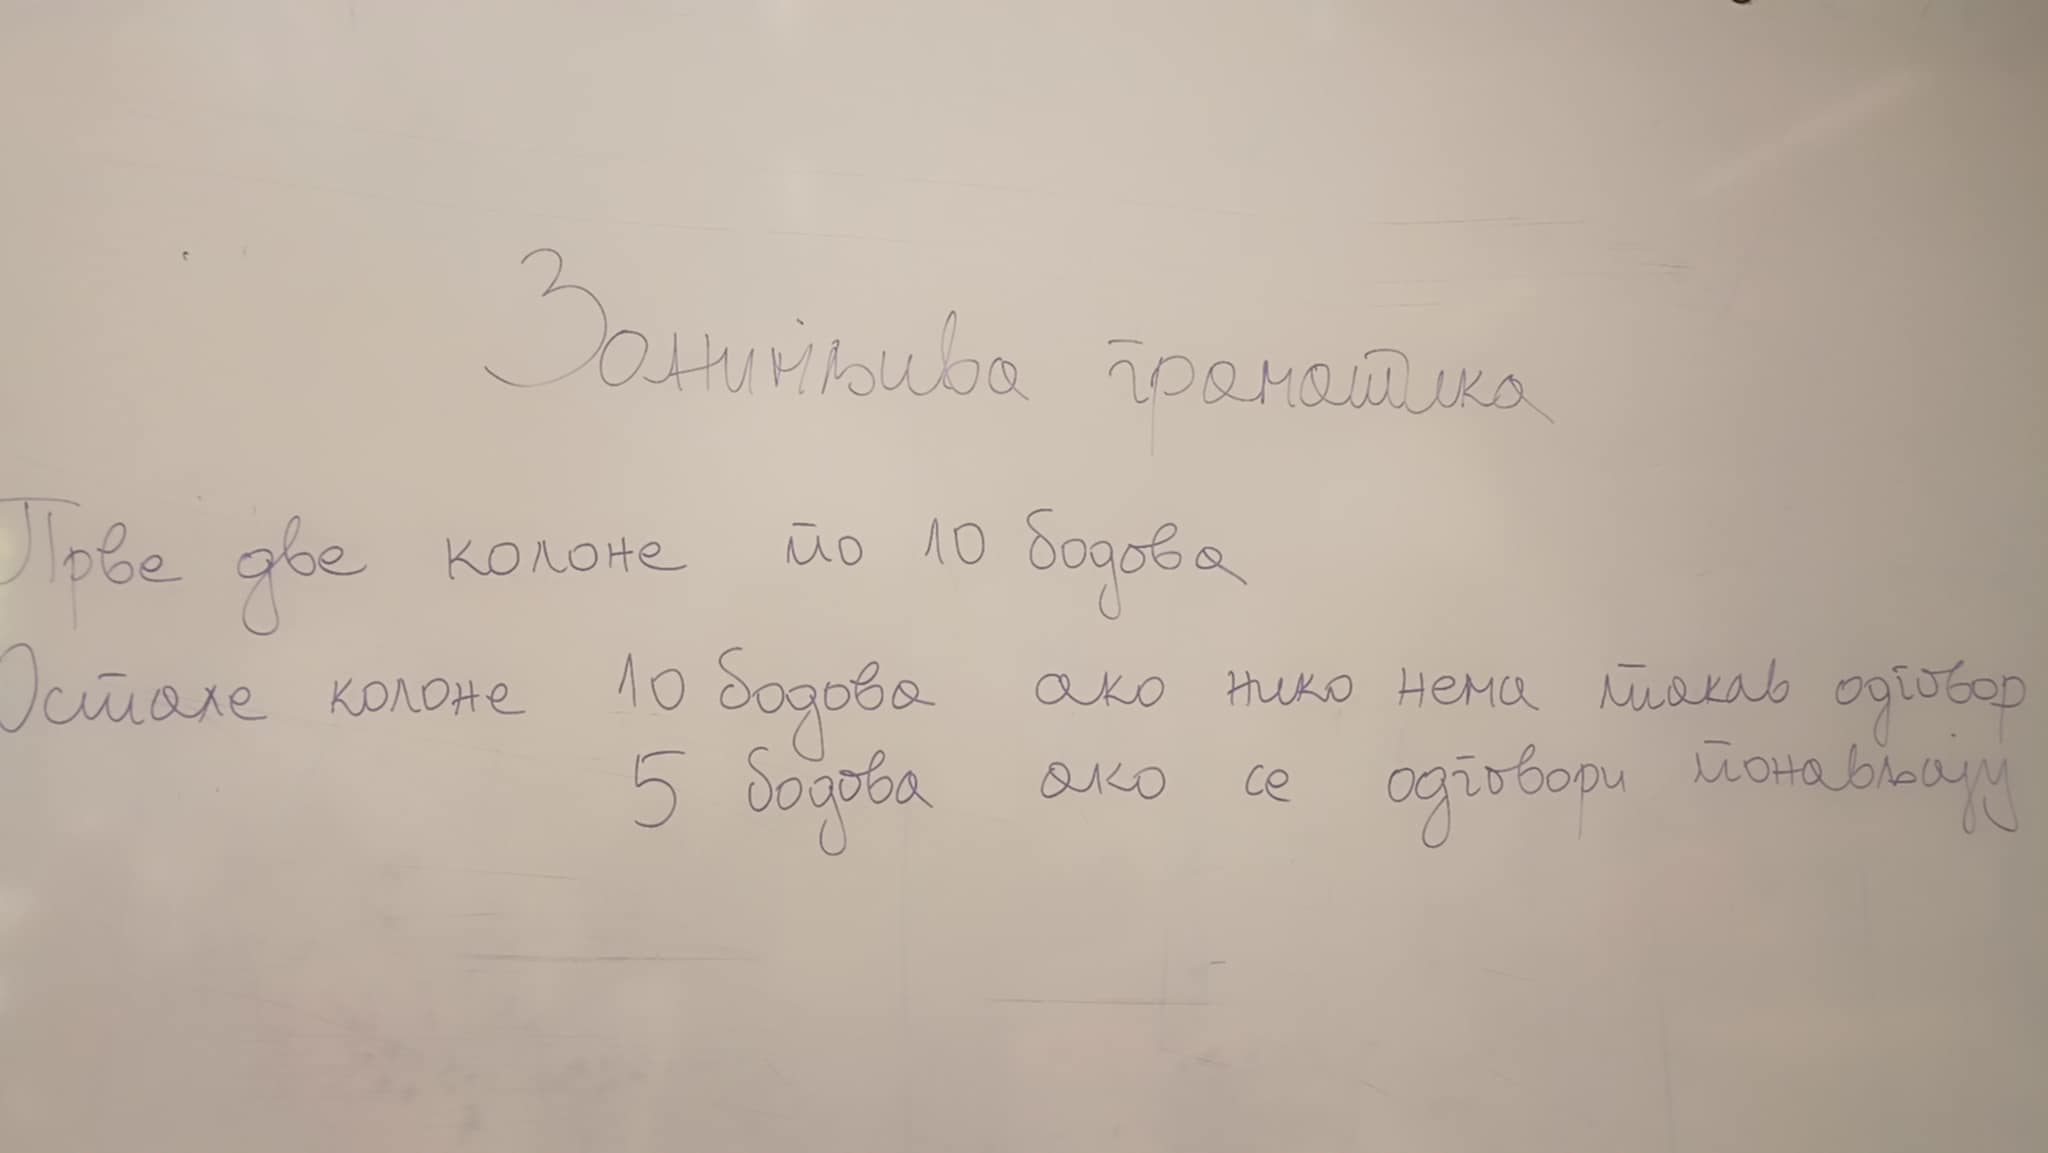 Занимљива граматика
Прве две колоне по 10 бодова
Остале колоне 10 бодова ако нико нема такав одговор
5 бодова ако се одговори понављају